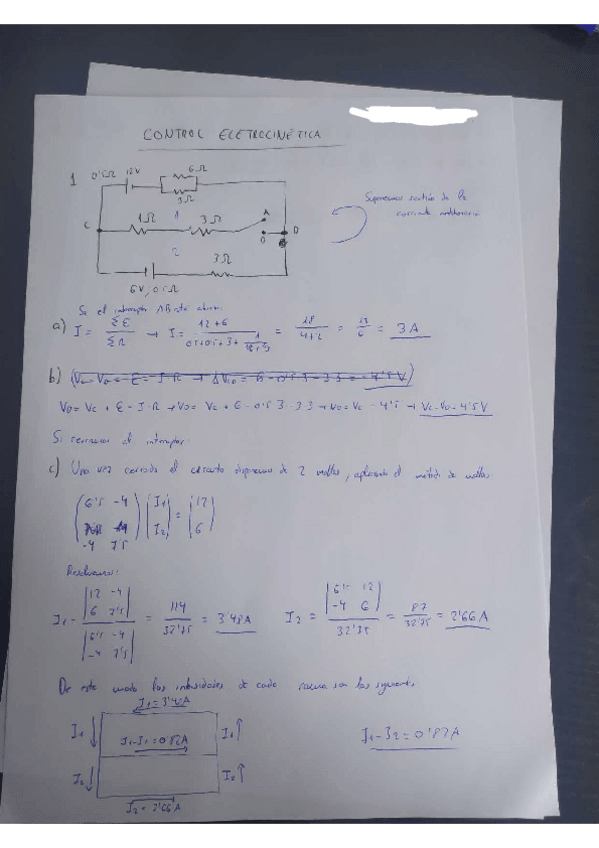 CONTROL ELETROCINÉTICA
1
0'5Ω 12V 6Ω
3Ω
Suponemos sentido de la
corriente antihorario
C 1Ω 1 3Ω A
2 D
3Ω
6V, 0'5Ω
Si el interruptor AB está abierto:
a) I = ΣE / ΣR → I = 12+6 / = 18 / 4+2 = 18 / 6 = 3A
b)
V_D = V_C + E - I·R → V_D = V_C + 6 - 0'5·3 - 3·3 → V_D = V_C - 4'5 → V_C - V_D = 4'5V
Si cerramos el interruptor:
c) Una vez cerrado el circuito disponemos de 2 mallas, aplicando el método de mallas:
(6'5 -4) (I1) = (12)
(-4 7'5) (I2) (6)
Resolvemos:
I1 = |12 -4; 6 7'5| / |6'5 -4; -4 7'5| = 114 / 32'75 = 3'48A I2 = |6'5 12; -4 6| / 32'75 = 87 / 32'75 = 2'66A
De este modo las intensidades de cada rama son las siguientes
I1 = 3'48A
I1 I1 I1-I2 = 0'82A
I2 I2
I2 = 2'66A